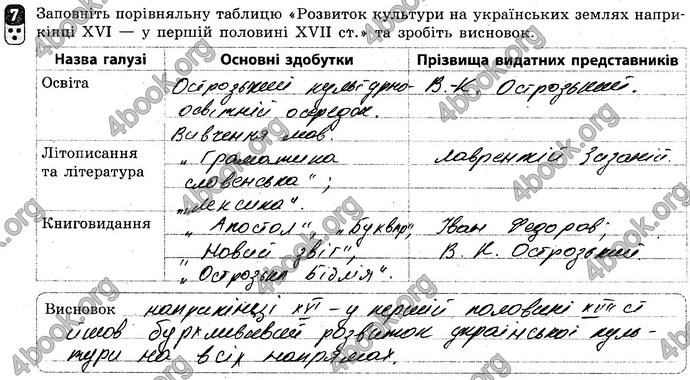 7 Заповніть порівняльну таблицю «Розвиток культури на українських землях напри-
кінці XVI — у першій половині XVII ст.» та зробіть висновок.
Назва галузі Основні здобутки Прізвища видатних представників
Освіта Острозький культурно- В.-К. Острозький.
освітній осередок.
Вивчення мов
Літописання „Граматика Лаврентій Зизаній
та література словенська";
„Лексика".
Книговидання „Апостол", „Буквар", Іван Федоров;
„Новий звіт", В. К. Острозький
„Острозька біблія".
Висновок наприкінці XVI – у першій половині XVII ст
йшов розвиток української куль-
тури на всіх напрямах.
4book.org